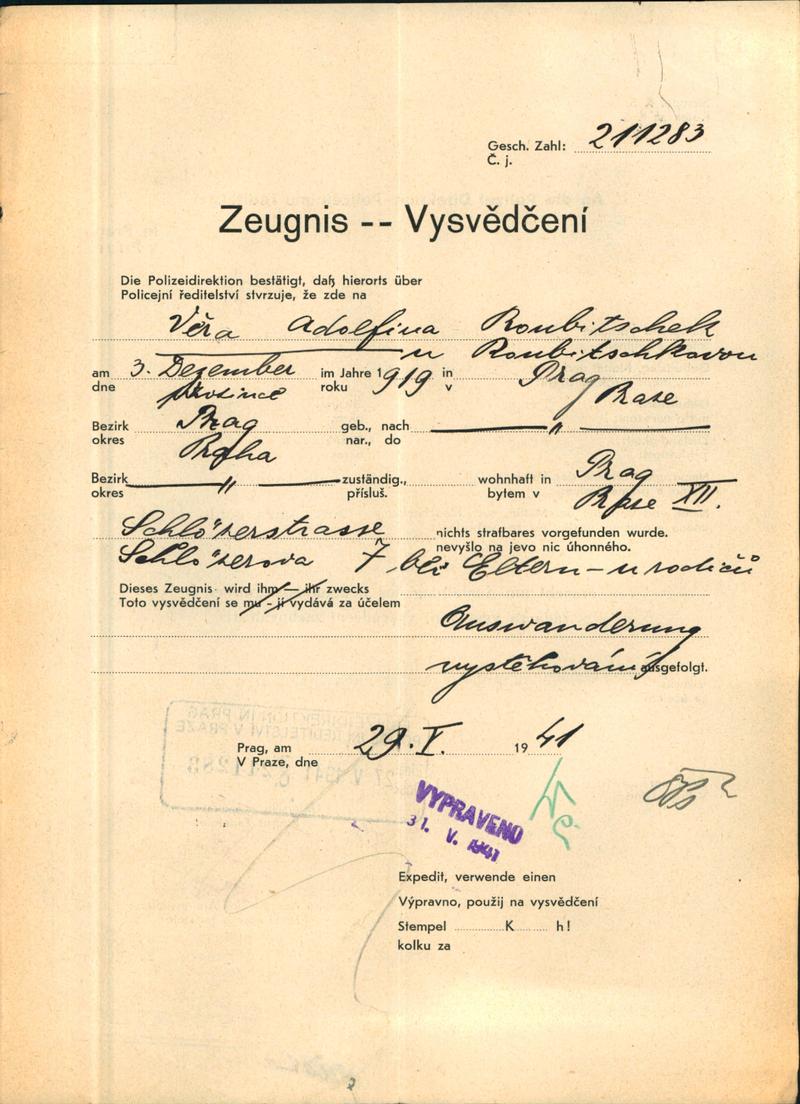 Gesch. Zahl: 211283
Č. j.
Zeugnis -- Vysvědčení
Die Polizeidirektion bestätigt, daß hierorts über
Policejní ředitelství stvrzuje, že zde na
Věra Adolfina Roubitschek
u Roubitschkovou
am 3. Dezember im Jahre 1919 in Prag
dne prosince roku v Praze
Bezirk Prag geb., nach — " —
okres Praha nar., do
Bezirk — " — zuständig., wohnhaft in Prag
okres přísluš. bytem v Praze XII.
Schlözerstrasse nichts strafbares vorgefunden wurde.
nevyšlo na jevo nic úhonného.
Schlözerova 7, bei Eltern – u rodičů
Dieses Zeugnis wird ihm — ihr zwecks
Toto vysvědčení se mu - jí vydává za účelem
Auswanderung
vystěhování ausgefolgt.
Prag, am 29. V. 1941
V Praze, dne
VYPRAVENO
31. V. 1941
Expedit, verwende einen
Výpravno, použij na vysvědčení
Stempel K h!
kolku za